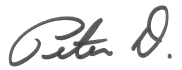 Peter D.